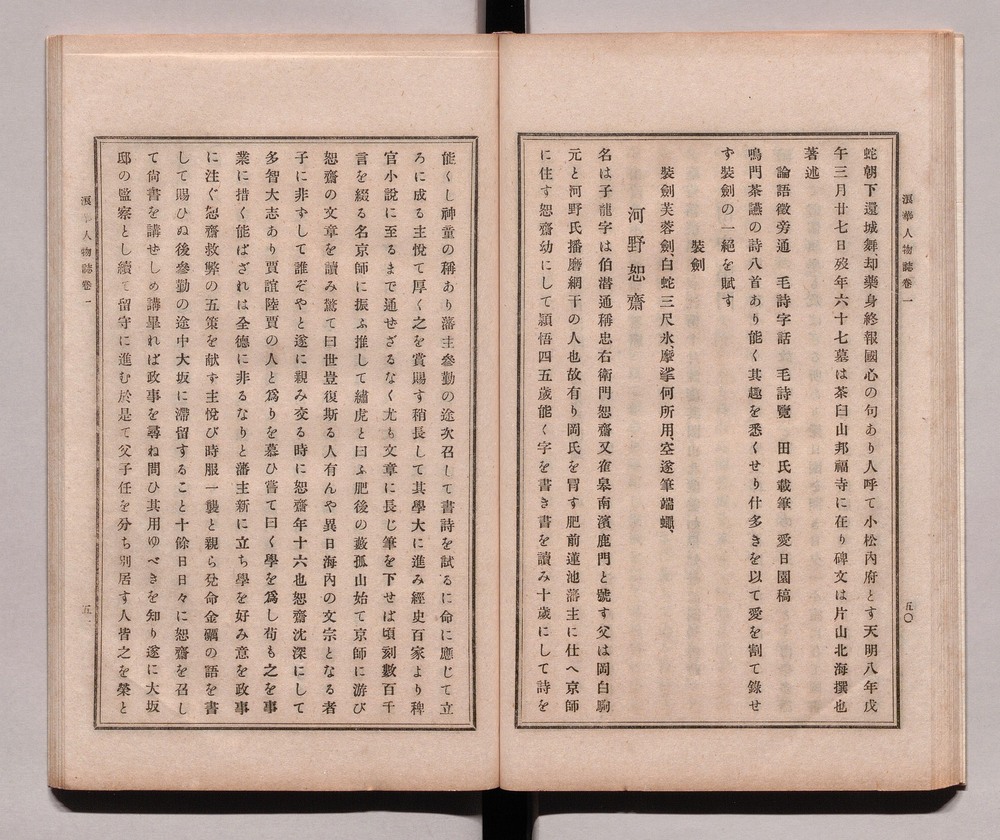 浪華人物誌卷一
五〇
蛇朝下還城舞却藥身終報國心の句あり人呼て小松內府とす天明八年戊
午三月廿七日歿年六十七墓は茶臼山邦福寺に在り碑文は片山北海撰也
著述
論語徵旁通　毛詩字話　毛詩覽　田氏載筆　愛日園稿
鳴門茶讌の詩八首あり能く其趣を悉くせり什多きを以て愛を割て錄せ
ず裝劍の一絕を賦す
裝劍
裝劍芙蓉劍、白蛇三尺氷摩挲何所用、空遂筆端蠅、
河野恕齋
名は子龍字は伯潜通稱忠右衛門恕齋又雀皋南濱鹿門と號す父は岡白駒
元と河野氏播磨網干の人也故有り岡氏を冐す肥前蓮池藩主に仕へ京師
に住す恕齋幼にして穎悟四五歲能く字を書き書を讀み十歲にして詩を
能くし神童の稱あり藩主參勤の途次召して書詩を試るに命に應じて立
ろに成る主悅て厚く之を賞賜す稍長して其學大に進み經史百家より稗
官小說に至るまで通せざるなく尤も文章に長じ筆を下せば頃刻數百千
言を綴る名京師に振ふ推して繡虎と曰ふ肥後の藪孤山始て京師に游び
恕齋の文章を讀み驚て曰世豈復斯る人有んや異日海內の文宗となる者
子に非ずして誰ぞやと遂に親み交る時に恕齋年十六也恕齋沈深にして
多智大志あり賈誼陸賈の人と爲りを慕ひ嘗て曰く學を爲し苟も之を事
業に措く能ばざれは全德に非るなりと藩主新に立ち學を好み意を政事
に注ぐ恕齋救弊の五策を献ず主悅び時服一襲と親ら兌命金礪の語を書
して賜ひぬ後參勤の途中大坂に滯留すること十餘日日々に恕齋を召し
て尙書を講せしめ講畢れば政事を尋ね問ひ其用ゆべきを知り遂に大坂
邸の監察とし續て留守に進む於是て父子任を分ち別居す人皆之を榮と
浪華人物誌卷一
五一